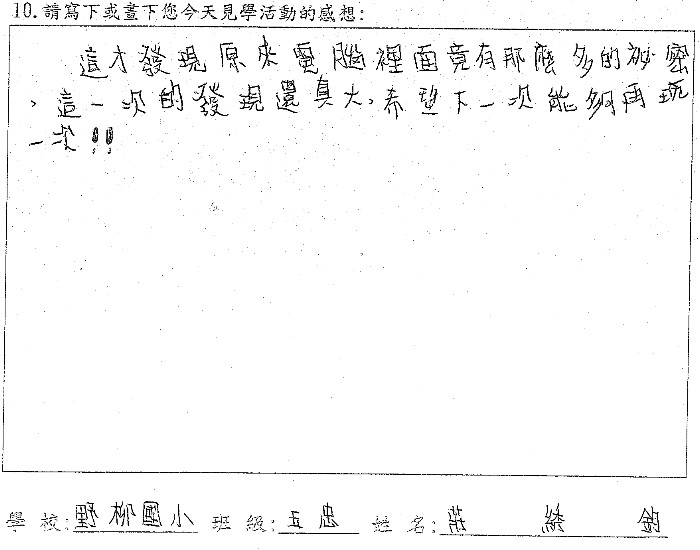 10.請寫下或畫下您今天見學活動的感想:
這才發現原來電腦裡面竟有那麼多的祕密
,這一次的發現還真大,希望下一次能夠再玩
一次!!
學校:野柳國小 班級:五忠 姓名:莊 銘